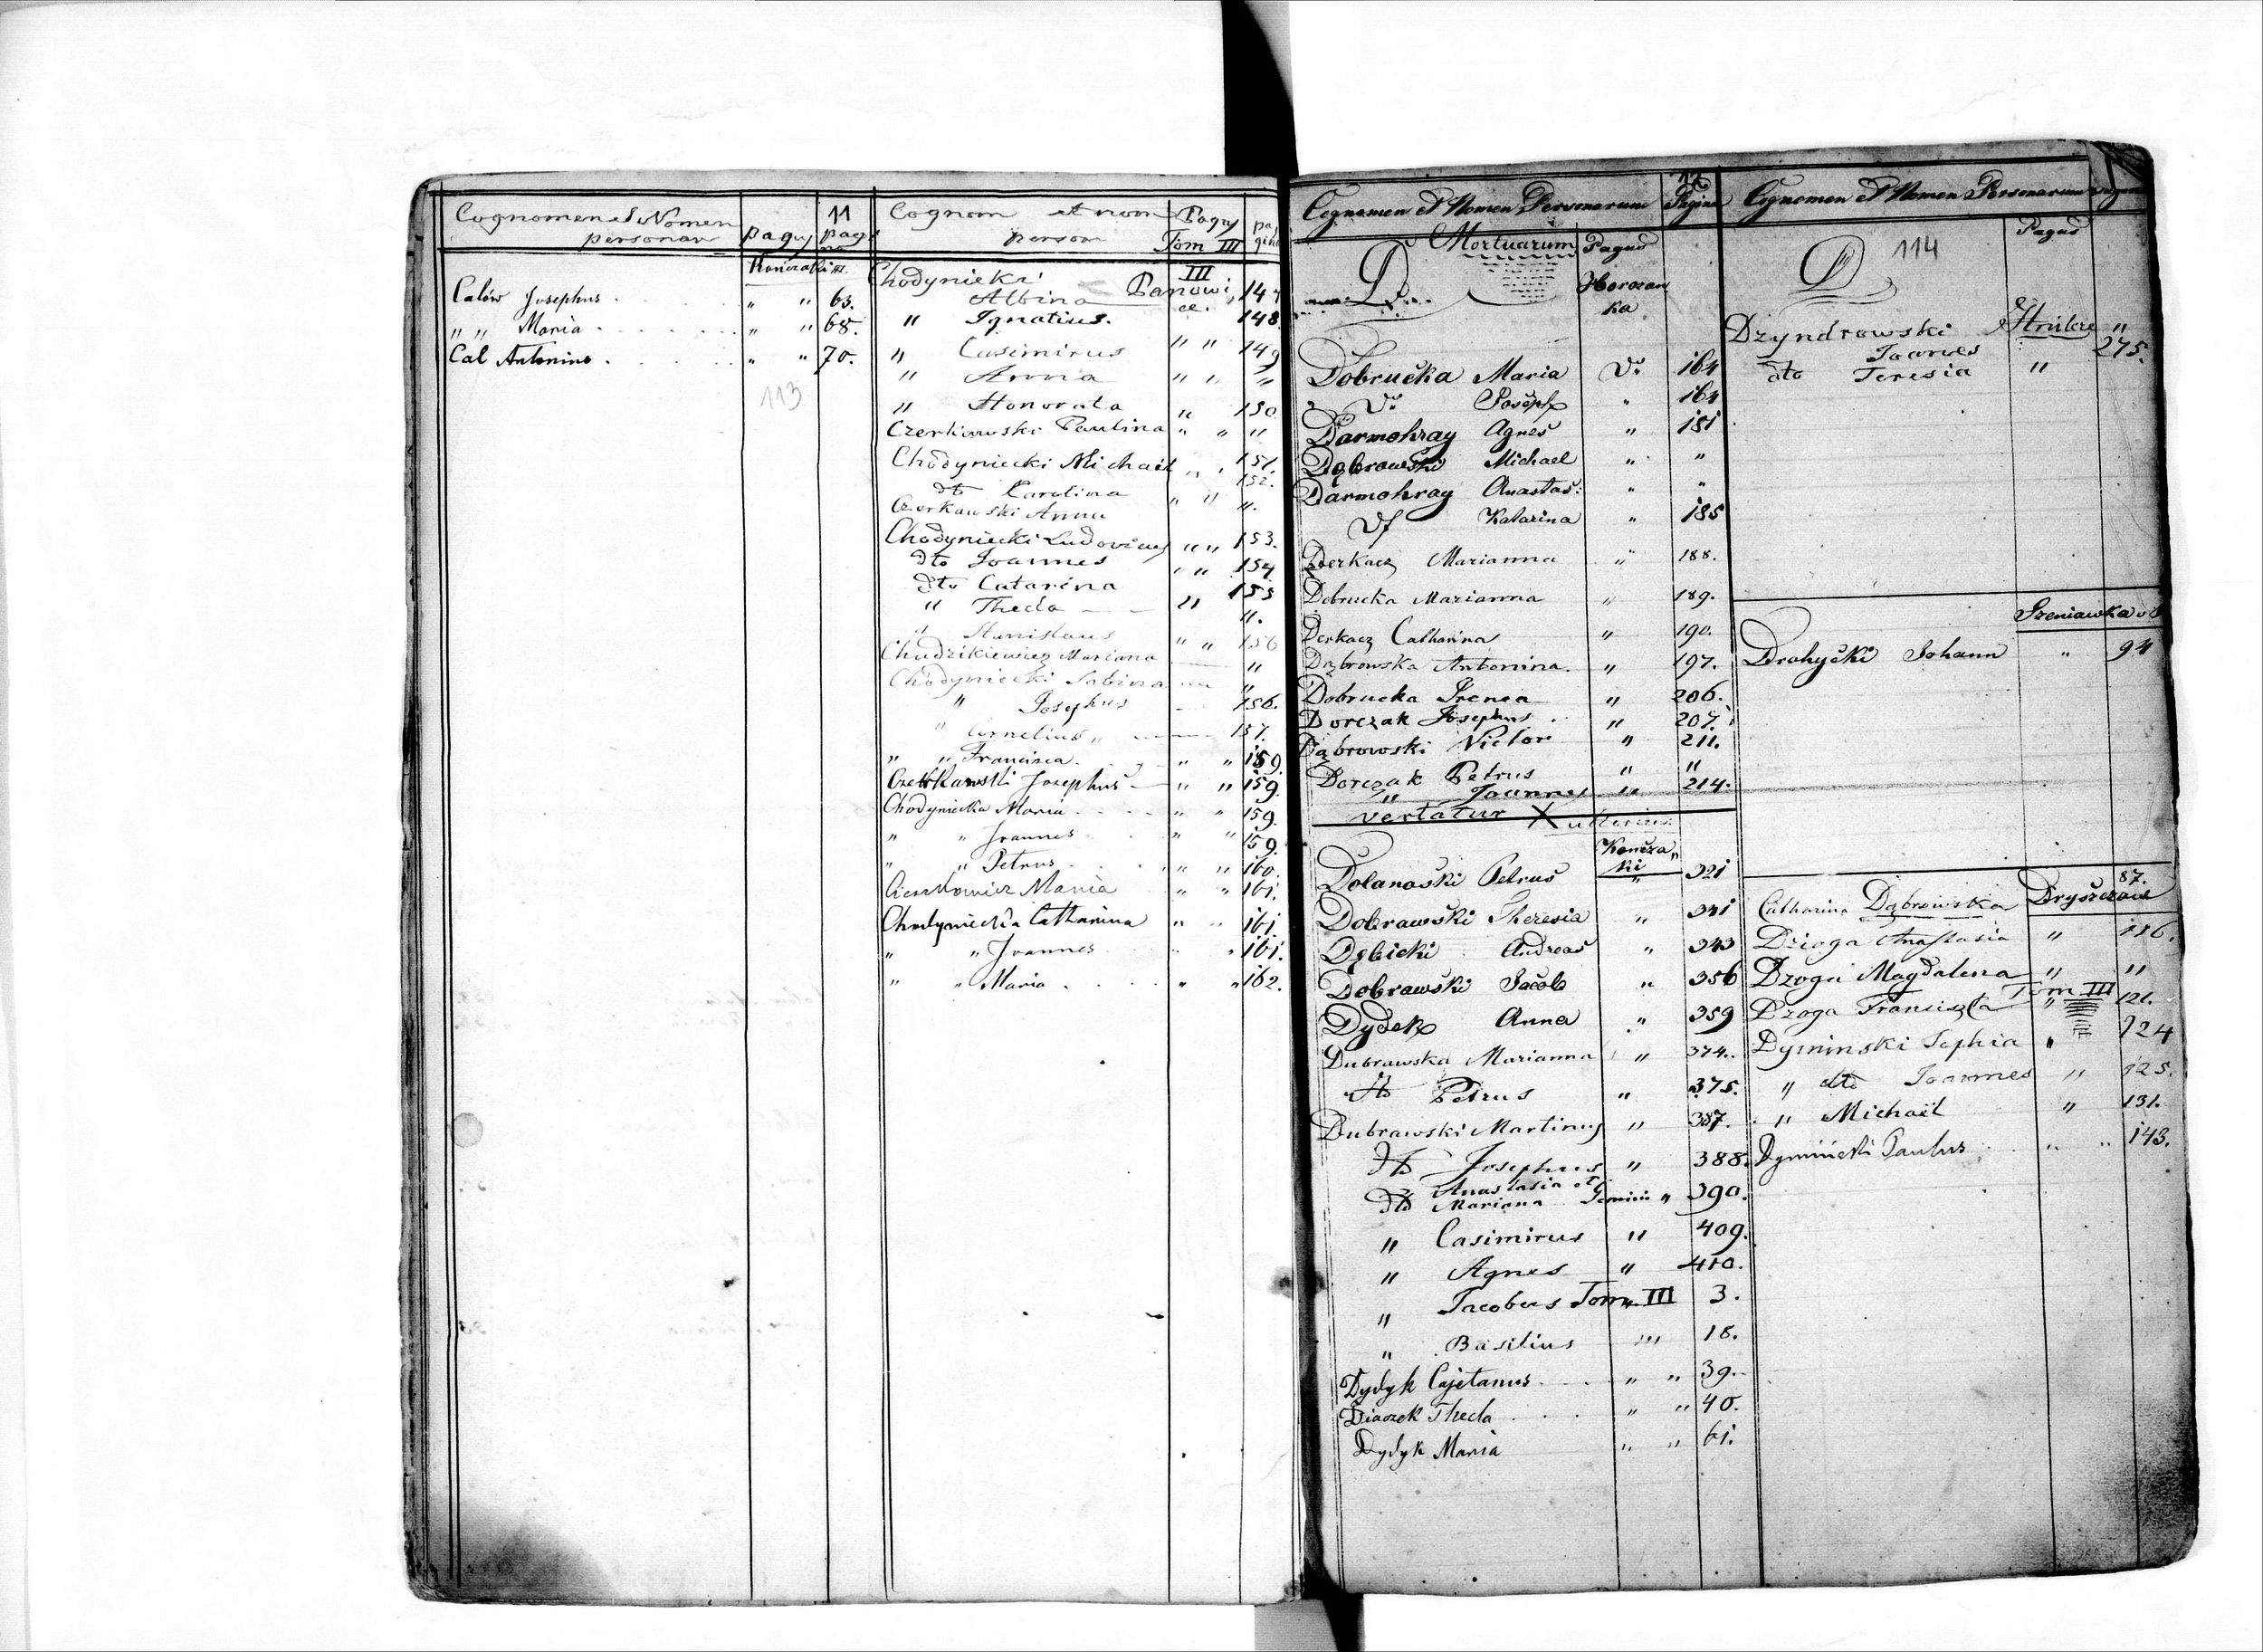 Cognomen et Nomen personar pagus 11 pagina
Kończaki III.
Calów Josephus . " " 63.
" " Maria . . . . . . " " 68.
Cal Antonina . . . . . " " 70.
113
Cognom et nom person Pagus Tom III pagina
Chodyniecki III
Albina Panowice. 147
" Ignatius. 148.
" Casimirus " " 149
" Anna " " "
" Honorata " 150
Czerkawski Paulina " " "
Chodyniecki Michaël " " 151.
dto Karolina 152.
Czerkawski Anna " " ".
Chodyniecki Ludovicus " " 153.
dto Joannes " " 154
dto Catarina 155
" Thecla — — " ".
" Stanislaus " " 156
Chudzikiewicz Mariana — "
Chodyniecki Sabina "
" Josephus 156.
" Cornelius " 157.
" " Francisca. " " 159.
Czerkawski Josephus — " " 159.
Chodyniecka Maria . . . . " " 159.
" " Joannes " " 159.
" " Petrus . . . " " 160.
Maria " " 161.
Chodyniecka Catharina " " 161.
" " Joannes " " 161.
" " Maria . . . . " " 162.
Cognomen et Nomen Personarum 12 Pagina
Mortuarum Pagus
D. Horozanka
Dobrucka Maria Do 164
Do Joseph " 164
Darmohray Agnes " 181
Dąbrowski Michael " "
Darmohray Anastas: " "
Do Katarina " 185
Derkacz Marianna " 188.
Dobrucka Marianna " 189.
Derkacz Catharina " 190.
Dąbrowska Antonina. " 197.
Dobrucka Irenea " 206.
Dorczak Josephus . " 207.
Dąbrowski Victor " 211.
Dorczak Petrus " "
" Joannes " 214.
vertatur X ulterius.
Kończaki
Dolanoski Petrus " 321
Dobrawski Theresia " 341
Dębicki Andreas " 343
Dobrawski Jacob " 356
Dydek Anna " 359
Dubrawska Marianna " 374.
dto Petrus " 375.
Dubrawski Martinus " 387.
dto Josephus " 388.
dto Anastasia et Mariana Gemini " 390.
" Casimirus " 409.
" Agnes " 410.
" Jacobus Tom III 3.
" Basilius " 18.
Dydyk Cajetanus . . . " " 39.
Thecla . . . " " 40.
Dydyk Maria " " 61.
Cognomen et Nomen Personarum
Pagus
D 114
Dzyndrowski
Joannes " 275.
dto Teresia "
Drohycki Johann " 94
Catharina Dąbrowska Dryszczów 87.
Dzioga Anastasia " 116.
Dzoga Magdalena " "
Tom III
Dzoga " 121.
Dyminski Sophia " 124
" dto Joannes " 125.
" Michaël " 131.
Dyminski Paulus . " " 143.